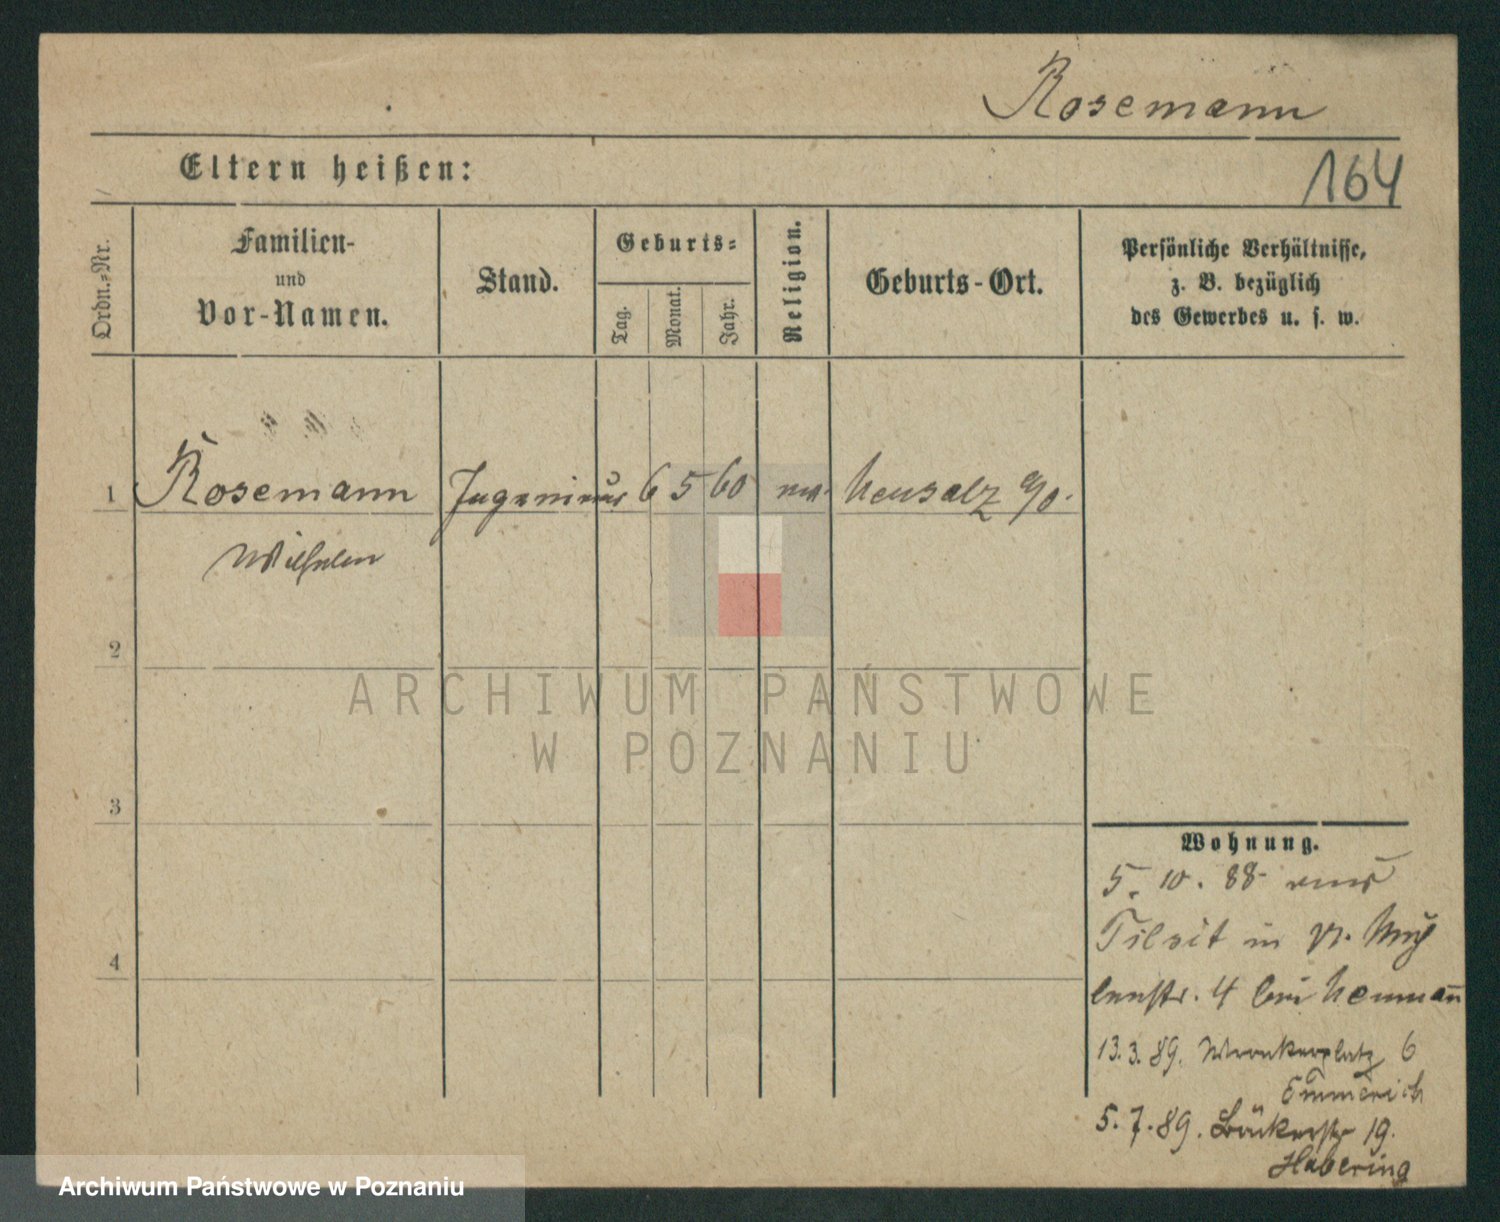 Rosemann
Eltern heißen:
164
Ordn.-Nr.
Familien-
und
Vor-Namen.
Stand.
Geburts-
Tag.
Monat.
Jahr.
Religion.
Geburts-Ort.
Persönliche Verhältnisse,
z. B. bezüglich
des Gewerbes u. s. w.
1 Rosemann Ingenieur 6 5 60 Neusalz
Wilhelm
2
3
4
ARCHIWUM PAŃSTWOWE
W POZNANIU
Wohnung.
5. 10. 88 aus
Tilsit in Müh
lenstr. 4 bei Neumann
13. 3. 89. Wronkerplatz 6
Emmerich
5. 7. 89. Bäckerstr 19.
Habering
Archiwum Państwowe w Poznaniu